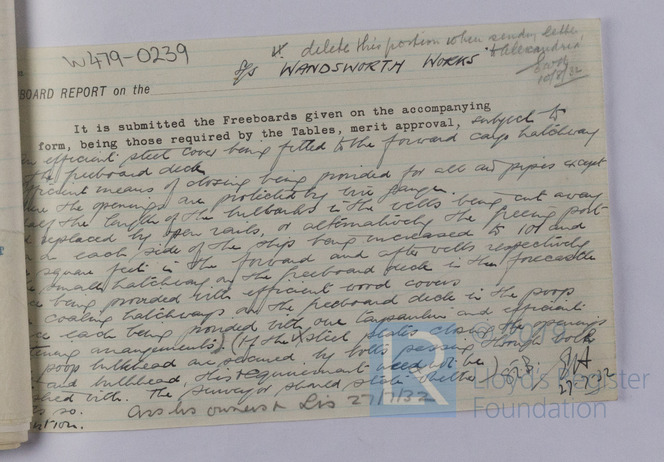 W479-0239
* delete this portion when sending letter
to Alexandria
10/8/32
S/S "WANDSWORTH WORKS"
BOARD REPORT on the
It is submitted the Freeboards given on the accompanying
form, being those required by the Tables, merit approval, subject to
efficient steel cover being fitted to the forward cargo hatchway
the freeboard deck
efficient means of closing being provided for all air pipes except
the openings are protected by wire gauze.
half the length of the bulwarks in the wells being cut away
replaced by open rails, or alternatively the freeing port
each side of the ship being increased to 101 and
square feet in the forward and after wells respectively
small hatchway on the freeboard deck in the forecastle
being provided with efficient wood covers
coaling hatchways on the freeboard deck in the poop
each being provided with one tarpaulin and efficient
arrangements) (If the steel plates closing the openings
poop bulkhead are secured by bolts passing through both
and bulkhead, this requirement need not be
with. The surveyor should state whether
is so.
owners & Lis 27/7/32
27-7-32
Lloyd's Register
Foundation